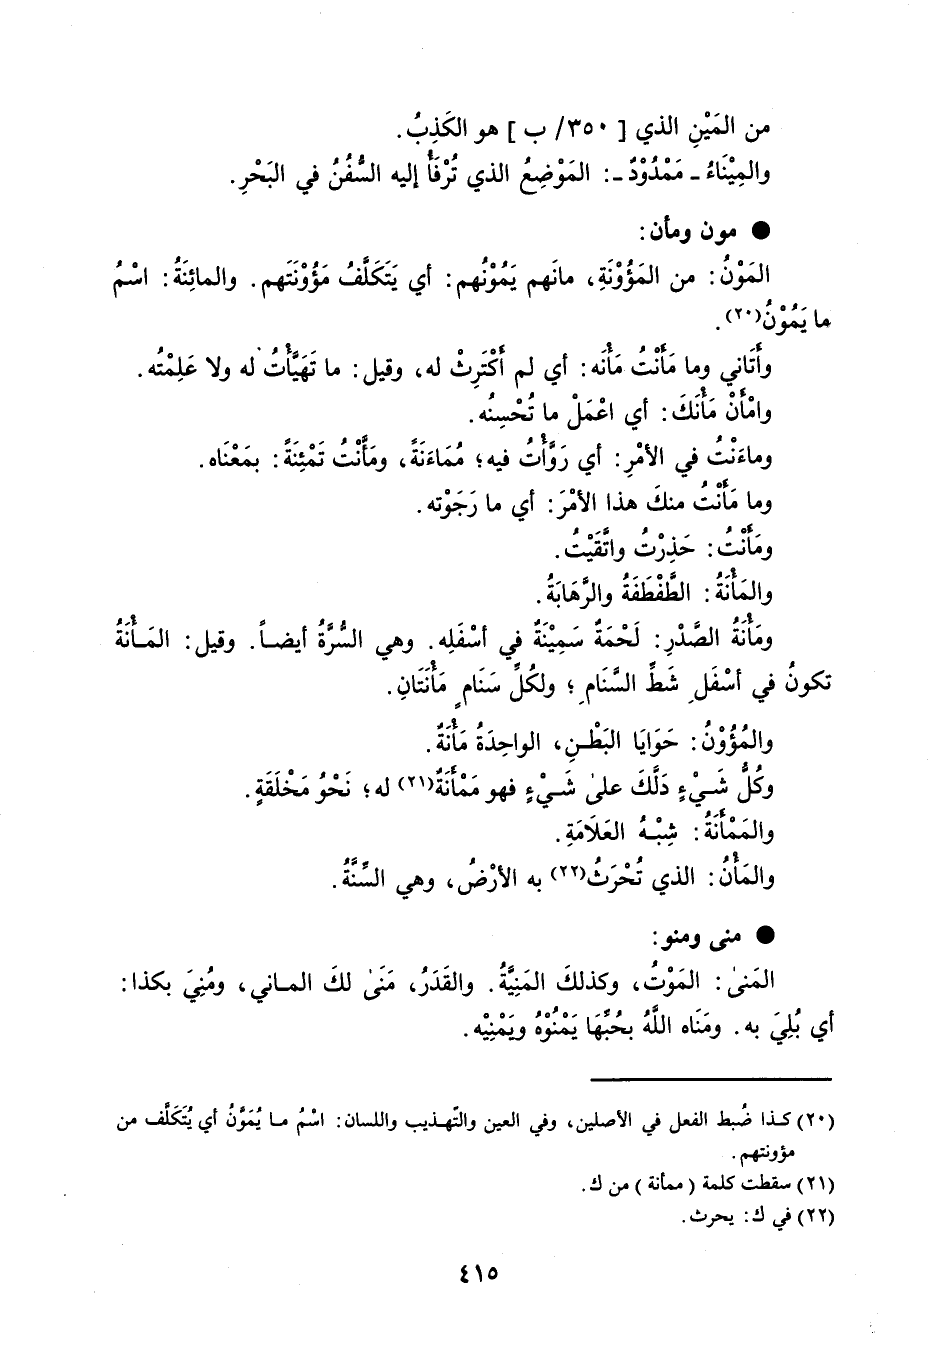 من المَيْنِ الذي [ ٣٥٠/ ب ] هو الكَذِبُ.
والمِيْنَاءُ ـ مَمْدُوْدٌ ـ: المَوْضِعُ الذي تُرْفَأُ إليه السُّفُنُ في البَحْرِ.
● مون ومأن:
المَوْنُ: من المَؤُوْنَةِ، مانَهم يَمُوْنُهم: أي يَتَكَلَّفُ مَؤُوْنَتَهم. والمائِنَةُ: اسْمُ
ما يَمُوْنُ(٢٠).
وأَتَاني وما مَأَنْتُ مَأْنَه: أي لم أَكْتَرِثْ له، وقيل: ما تَهَيَّأْتُ له ولا عَلِمْتُه.
وامْأَنْ مَأْنَكَ: أي اعْمَلْ ما تُحْسِنُه.
وماءَنْتُ في الأمْرِ: أي رَوَّأْتُ فيه؛ مُمَاءَنَةً، ومَأَّنْتُ تَمْئِنَةً: بمَعْنَاه.
وما مَأَنْتُ منكَ هذا الأمْرَ: أي ما رَجَوْته.
ومَأَنْتُ: حَذِرْتُ واتَّقَيْتُ.
والمَأْنَةُ: الطَّفْطَفَةُ والرَّهَابَةُ.
ومَأْنَةُ الصَّدْرِ: لَحْمَةٌ سَمِيْنَةٌ في أسْفَلِه. وهي السُّرَّةُ أيضاً. وقيل: المَأْنَةُ
تكونُ في أسْفَلِ شَطِّ السَّنَامِ؛ ولكُلِّ سَنَامٍ مَأْنَتَانِ.
والمُؤُوْنُ: حَوَايَا البَطْنِ، الواحِدَةُ مَأْنَةٌ.
وكُلُّ شَيْءٍ دَلَّكَ على شَيْءٍ فهو مَمْأَنَةٌ(٢١) له؛ نَحْوُ مَخْلَقَةٍ.
والمَمْأَنَةُ: شِبْهُ العَلَامَةِ.
والمَأْنُ: الذي تُحْرَثُ(٢٢) به الأرْضُ، وهي السِّنَّةُ.
● منى ومنو:
المَنىٰ: المَوْتُ، وكذلكَ المَنِيَّةُ. والقَدَرُ، مَنَىٰ لكَ الماني، ومُنِيَ بكذا:
أي بُلِيَ به. ومَنَاه اللَّهُ بحُبِّهَا يَمْنُوْهُ ويَمْنِيْه.
(٢٠) كذا ضُبط الفعل في الأصلين، وفي العين والتّهذيب واللسان: اسْمُ ما يُمَوَّنُ أي يُتَكَلَّف من
مؤونتهم.
(٢١) سقطت كلمة ( ممأنة ) من ك.
(٢٢) في ك: يحرث.
٤١٥